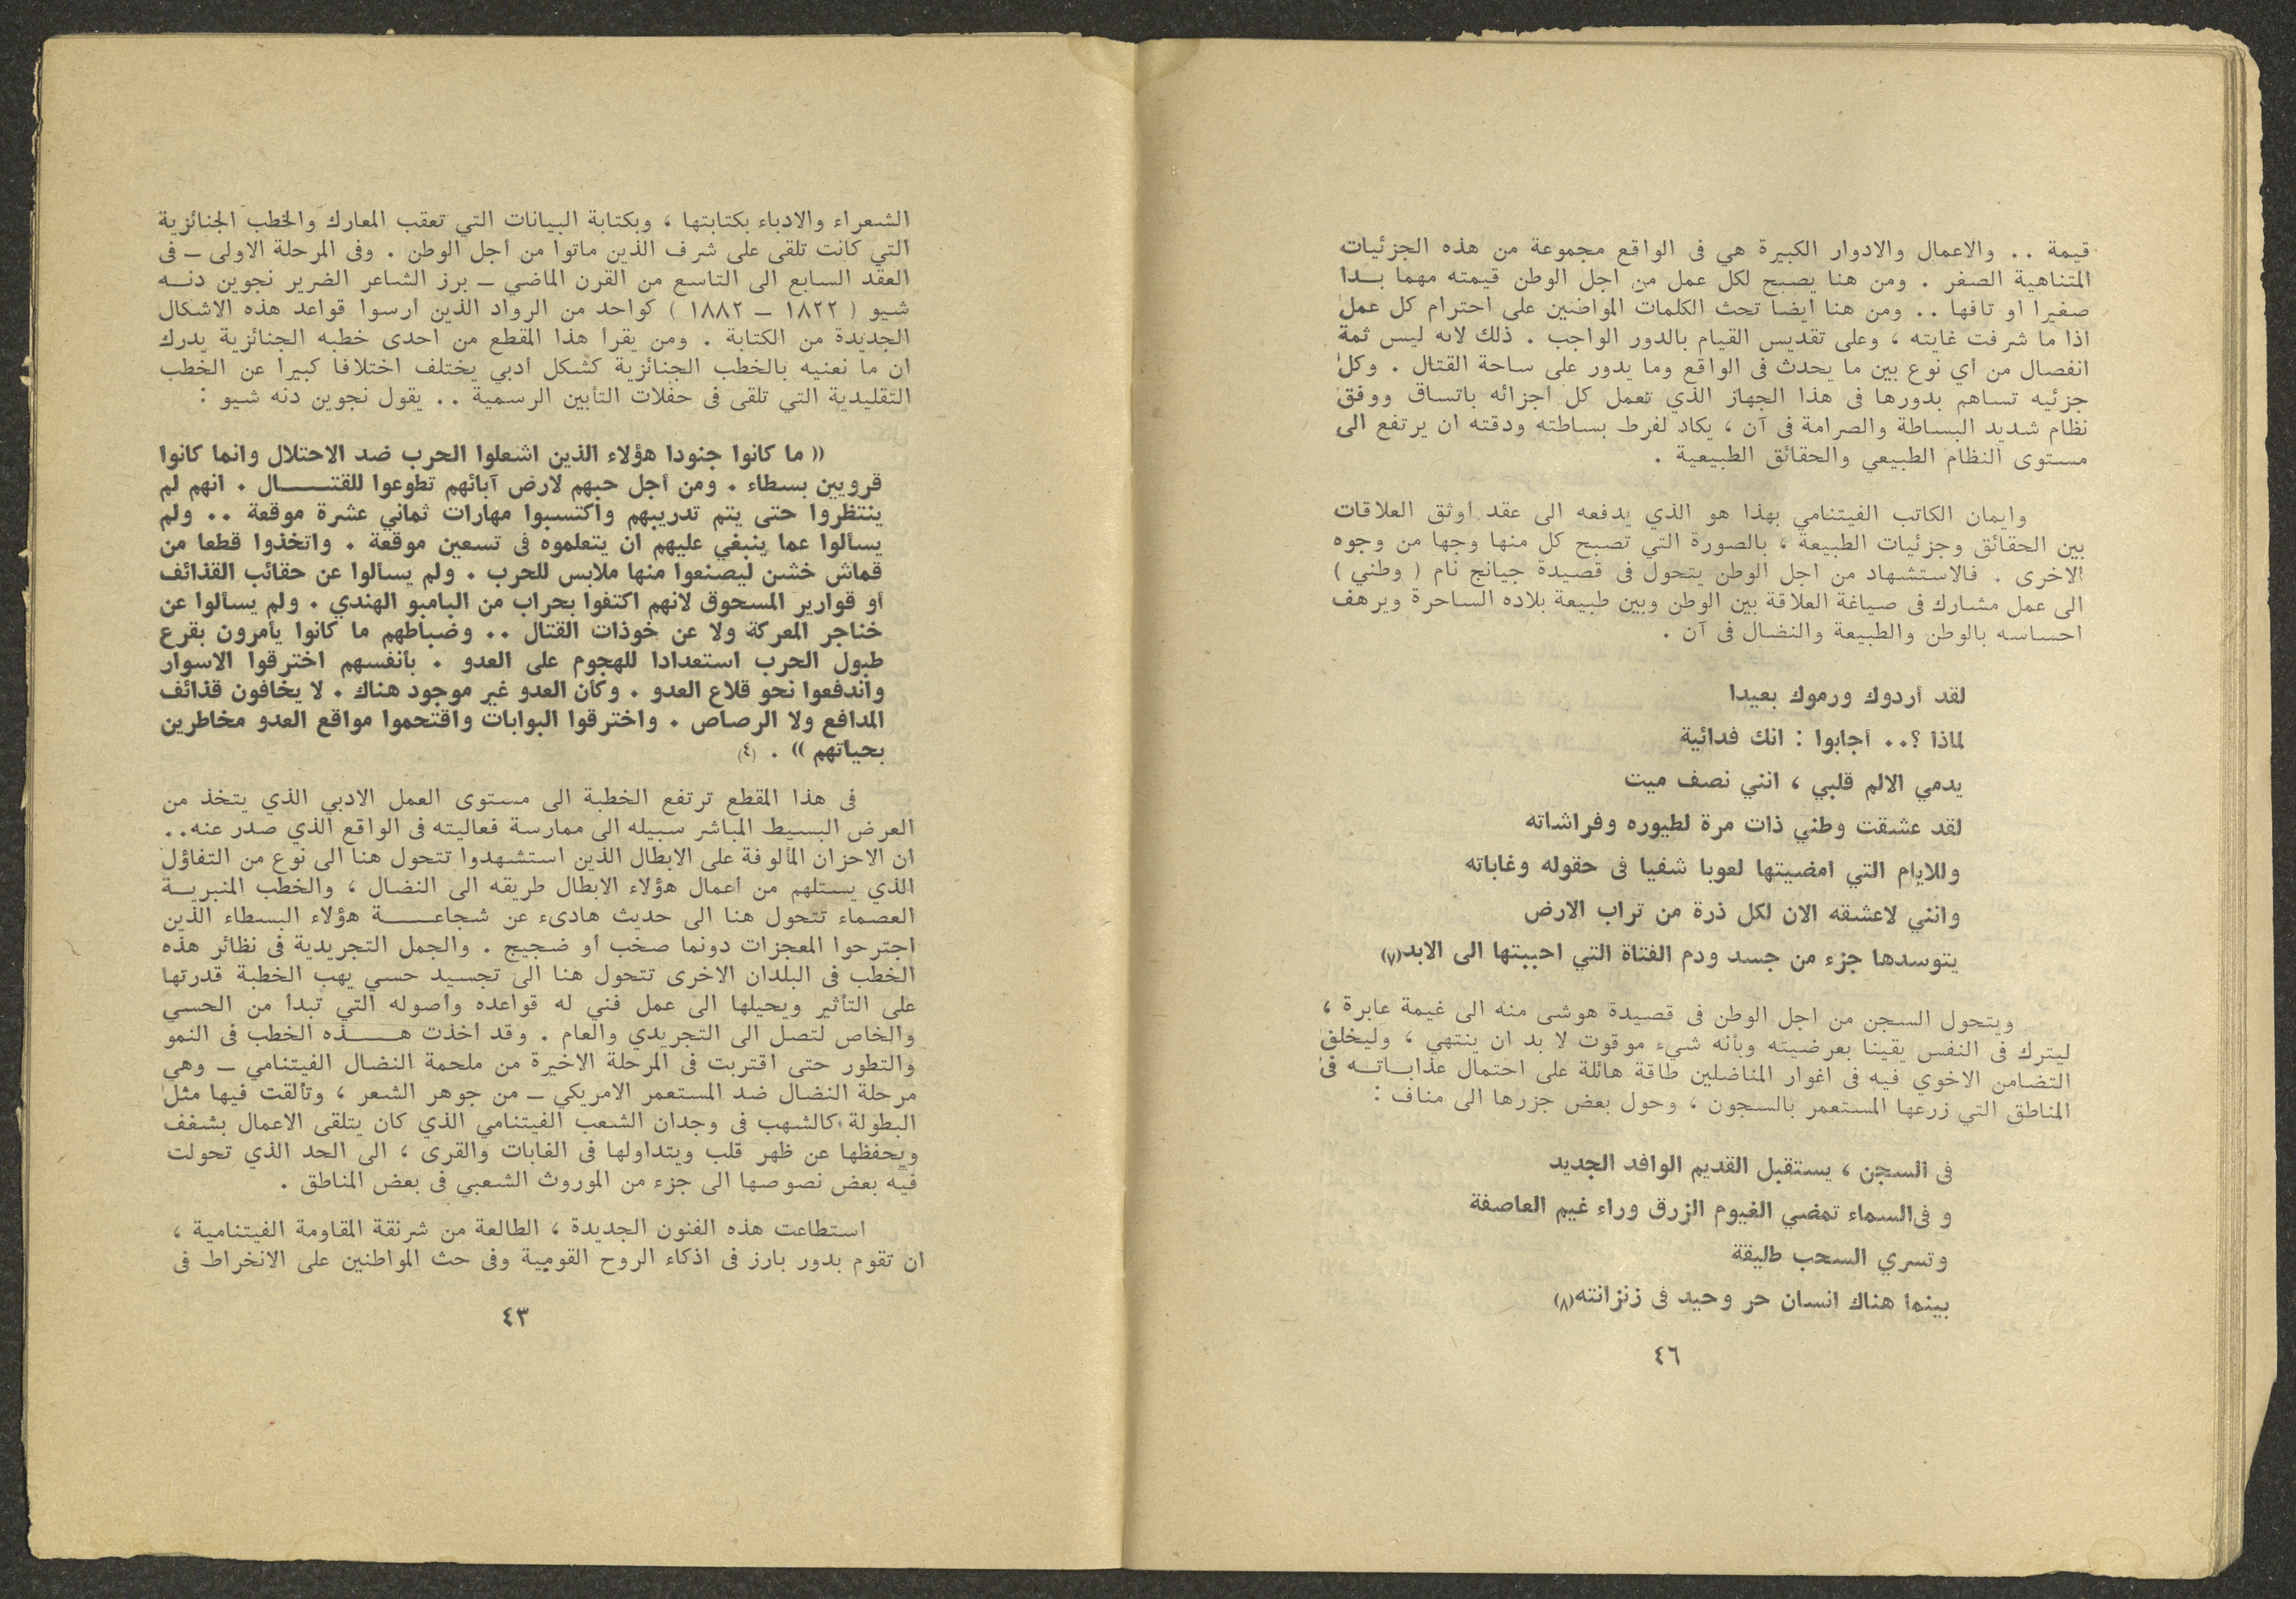 قيمة .. والاعمال والادوار الكبيرة هي فى الواقع مجموعة من هذه الجزئيات
المتناهية الصغر . ومن هنا يصبح لكل عمل من اجل الوطن قيمته مهما بـــدا
صغيرا او تافها .. ومن هنا ايضا تحث الكلمات المواطنين على احترام كل عمل
اذا ما شرفت غايته ، وعلى تقديس القيام بالدور الواجب . ذلك لانه ليس ثمة
انفصال من أي نوع بين ما يحدث فى الواقع وما يدور على ساحة القتال . وكل
جزئيه تساهم بدورها فى هذا الجهاز الذي تعمل كل أجزائه باتساق ووفق
نظام شديد البساطة والصرامة فى آن ، يكاد لفرط بساطته ودقته ان يرتفع الى
مستوى النظام الطبيعي والحقائق الطبيعية .
وايمان الكاتب الفيتنامي بهذا هو الذي يدفعه الى عقد أوثق العلاقات
بين الحقائق وجزئيات الطبيعة ، بالصورة التي تصبح كل منها وجها من وجوه
الاخرى . فالاستشهاد من اجل الوطن يتحول فى قصيدة جيانج نام ( وطني )
الى عمل مشارك فى صياغة العلاقة بين الوطن وبين طبيعة بلاده الساحرة ويرهف
احساسه بالوطن والطبيعة والنضال فى آن .
لقد أردوك ورموك بعيدا
لماذا ؟.. أجابوا : انك فدائية
يدمي الالم قلبي ، انني نصف ميت
لقد عشقت وطني ذات مرة لطيوره وفراشاته
وللايام التي امضيتها لعوبا شغيا فى حقوله وغاباته
وانني لاعشقه الان لكل ذرة من تراب الارض
يتوسدها جزء من جسد ودم الفتاة التي احببتها الى الابد(٧)
ويتحول السجن من اجل الوطن فى قصيدة هوشى منه الى غيمة عابرة ،
ليترك فى النفس يقينا بعرضيته وبأنه شيء موقوت لا بد ان ينتهي ، وليخلق
التضامن الاخوي فيه فى اغوار المناضلين طاقة هائلة على احتمال عذابـــاتـــه فى
المناطق التي زرعها المستعمر بالسجون ، وحول بعض جزرها الى مناف :
فى السجن ، يستقبل القديم الوافد الجديد
و فى السماء تمضي الغيوم الزرق وراء غيم العاصفة
وتسري السحب طليقة
بينما هناك انسان حر وحيد فى زنزانته(٨)
٤٦
الشعراء والادباء بكتابتها ، وبكتابة البيانات التي تعقب المعارك والخطب الجنائزية
التي كانت تلقى على شرف الذين ماتوا من أجل الوطن . وفى المرحلة الاولى ــ فى
العقد السابع الى التاسع من القرن الماضي ــ برز الشاعر الضرير نجوين دنـــه
شيو ( ١٨٢٢ ــ ١٨٨٢ ) كواحد من الرواد الذين أرسوا قواعد هذه الاشكال
الجديدة من الكتابة . ومن يقرأ هذا المقطع من احدى خطبه الجنائزية يدرك
ان ما نعنيه بالخطب الجنائزية كشكل أدبي يختلف اختلافا كبيرا عن الخطب
التقليدية التي تلقى فى حفلات التأبين الرسمية .. يقول نجوين دنه شيو :
(( ما كانوا جنودا هؤلاء الذين اشعلوا الحرب ضد الاحتلال وانما كانوا
قرويين بسطاء . ومن أجل حبهم لارض آبائهم تطوعوا للقتـــــال . انهم لم
ينتظروا حتى يتم تدريبهم وأكتسبوا مهارات ثماني عشرة موقعة .. ولم
يسألوا عما ينبغي عليهم ان يتعلموه فى تسعين موقعة . واتخذوا قطعا من
قماش خشن ليصنعوا منها ملابس للحرب . ولم يسألوا عن حقائب القذائف
أو قوارير المسحوق لانهم اكتفوا بحراب من البامبو الهندي . ولم يسألوا عن
خناجر المعركة ولا عن خوذات القتال .. وضباطهم ما كانوا يأمرون بقرع
طبول الحرب استعدادا للهجوم على العدو . بأنفسهم اخترقوا الاسوار
واندفعوا نحو قلاع العدو . وكأن العدو غير موجود هناك . لا يخافون قذائف
المدافع ولا الرصاص . واخترقوا البوابات واقتحموا مواقع العدو مخاطرين
بحياتهم )) . (٤)
فى هذا المقطع ترتفع الخطبة الى مستوى العمل الادبي الذي يتخذ من
العرض البسيط المباشر سبيله الى ممارسة فعاليته فى الواقع الذي صدر عنه..
ان الاحزان المألوفة على الابطال الذين استشهدوا تتحول هنا الى نوع من التفاؤل
الذي يستلهم من أعمال هؤلاء الابطال طريقه الى النضال ، والخطب المنبريـــة
العصماء تتحول هنا الى حديث هادىء عن شجاعـــــة هؤلاء البسطاء الذين
اجترحوا المعجزات دونما صخب أو ضجيج . والجمل التجريدية فى نظائر هذه
الخطب فى البلدان الاخرى تتحول هنا الى تجسيد حسي يهب الخطبة قدرتها
على التأثير ويحيلها الى عمل فني له قواعده وأصوله التي تبدأ من الحسي
والخاص لتصل الى التجريدي والعام . وقد أخذت هـــــذه الخطب فى النمو
والتطور حتى اقتربت فى المرحلة الاخيرة من ملحمة النضال الفيتنامي ــ وهي
مرحلة النضال ضد المستعمر الامريكي ــ من جوهر الشعر ، وتألقت فيها مثل
البطولة كالشهب فى وجدان الشعب الفيتنامي الذي كان يتلقى الاعمال بشغف
ويحفظها عن ظهر قلب ويتداولها فى الغابات والقرى ، الى الحد الذي تحولت
فيه بعض نصوصها الى جزء من الموروث الشعبي فى بعض المناطق .
استطاعت هذه الفنون الجديدة ، الطالعة من شرنقة المقاومة الفيتنامية ،
ان تقوم بدور بارز فى اذكاء الروح القومية وفى حث المواطنين على الانخراط فى
٤٣